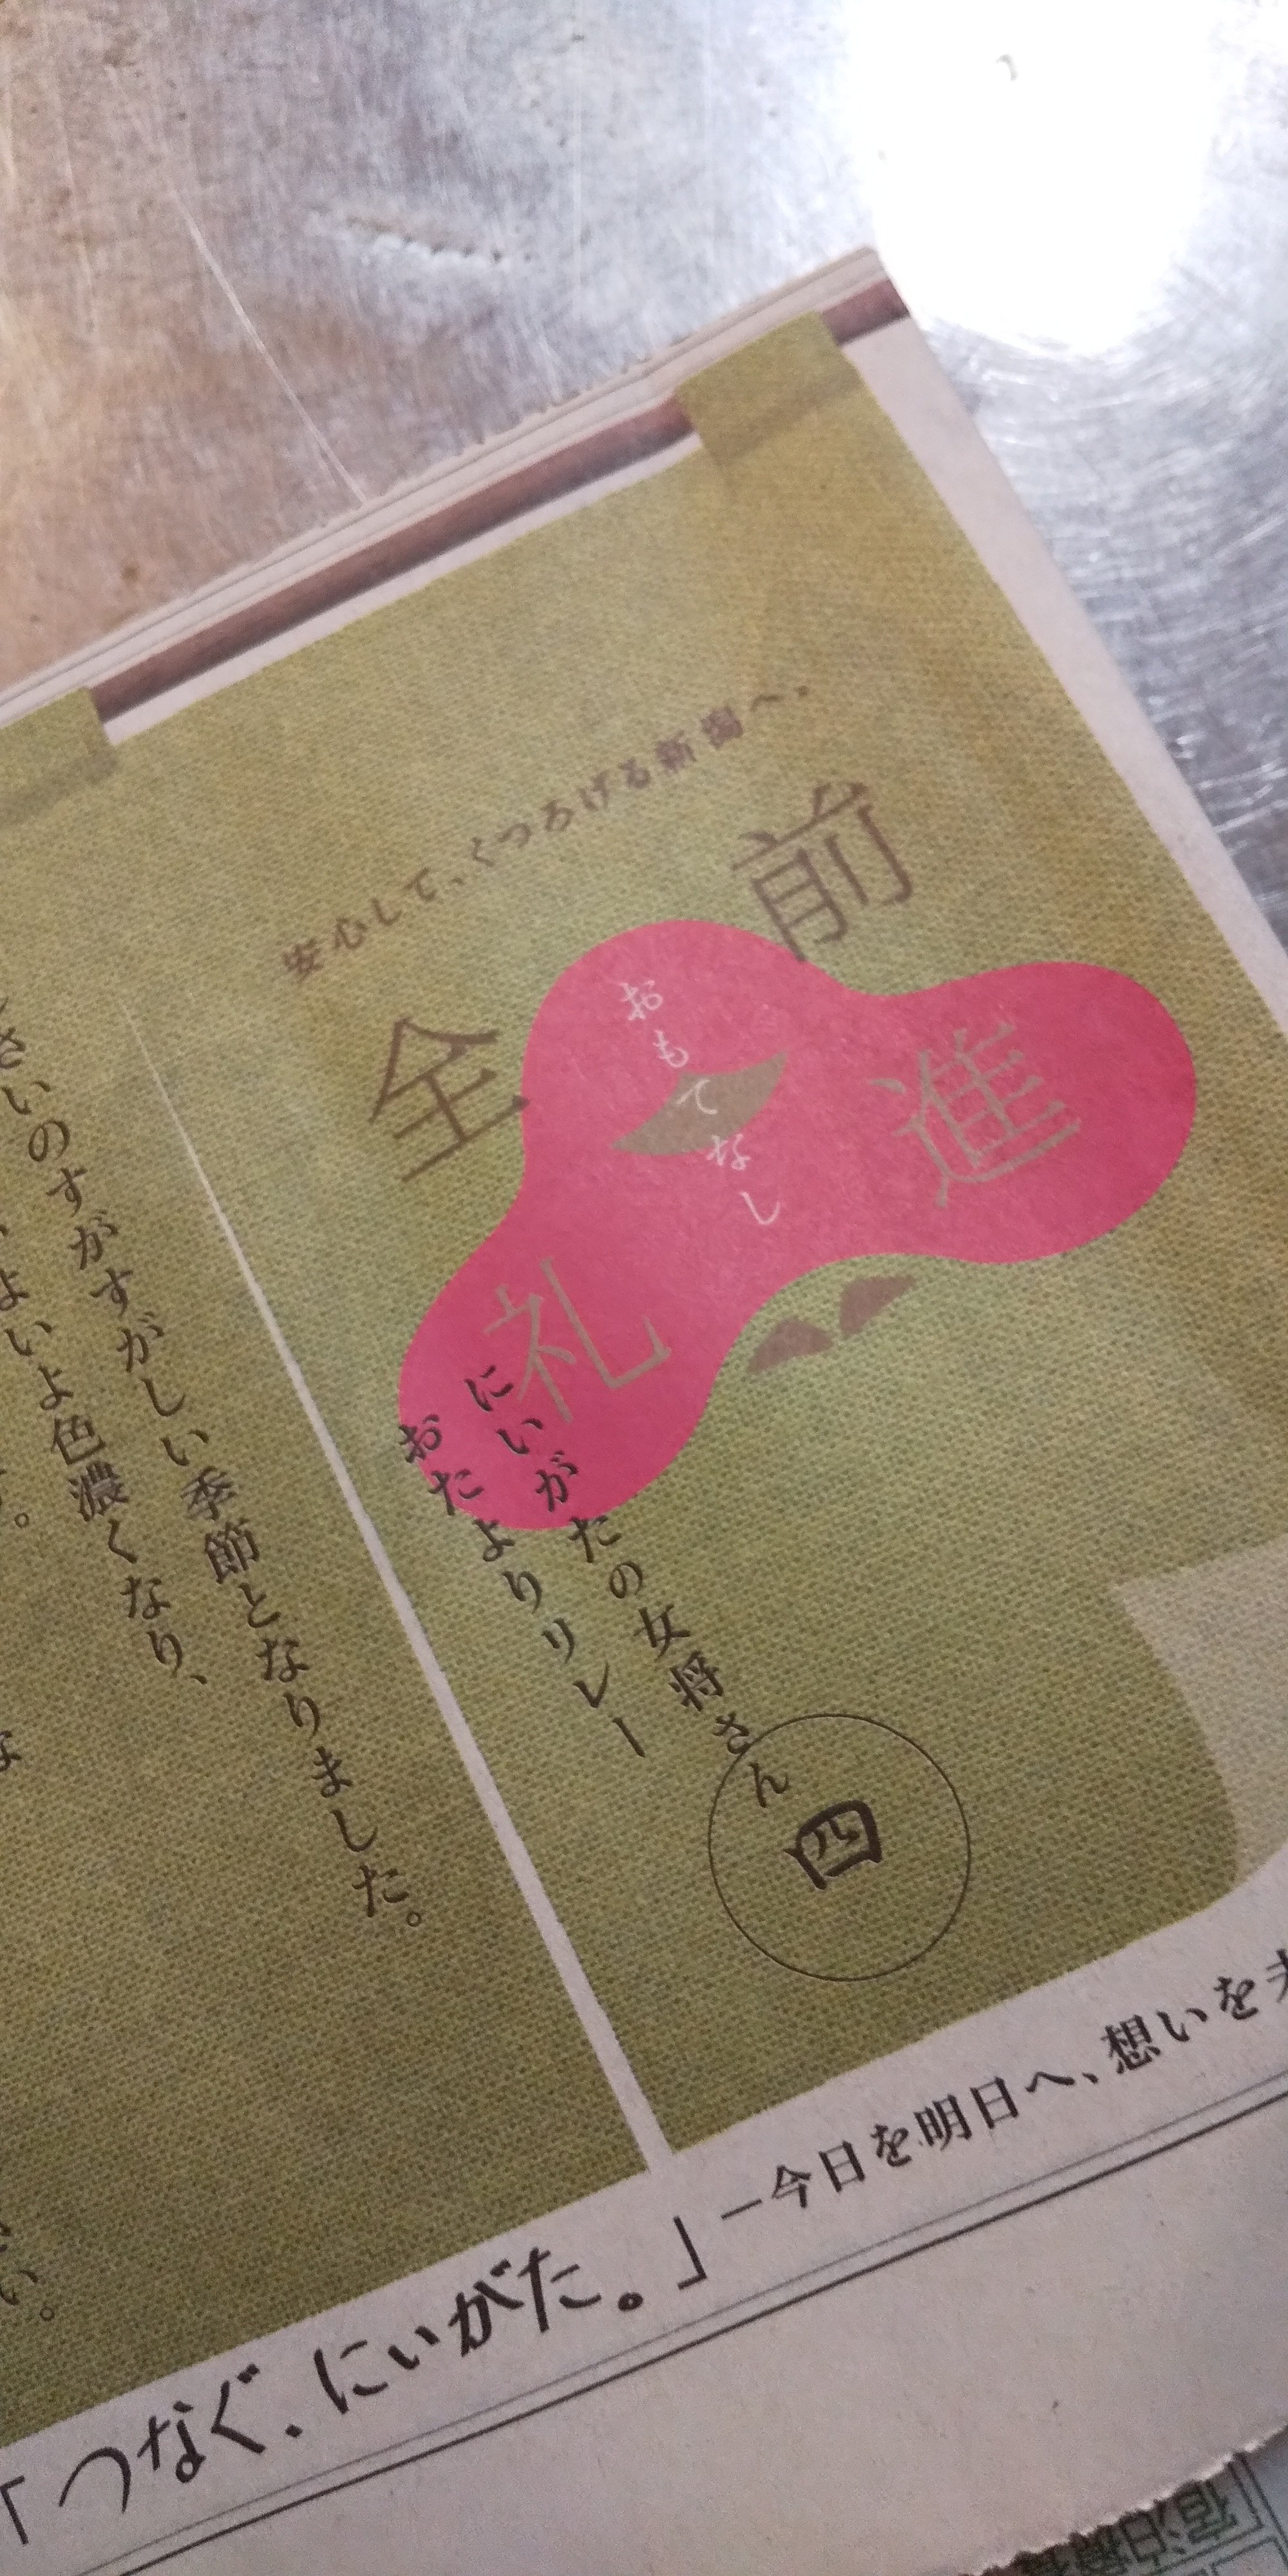 安心して、くつろげる新潟へ。
前進
おもてなし
全礼
にいがたの女将さん
おたよりリレー
四
さいのすがすがしい季節となりました。
よいよ色濃くなり、
「つなぐ、にいがた。」―今日を明日へ、想いを
宿泊